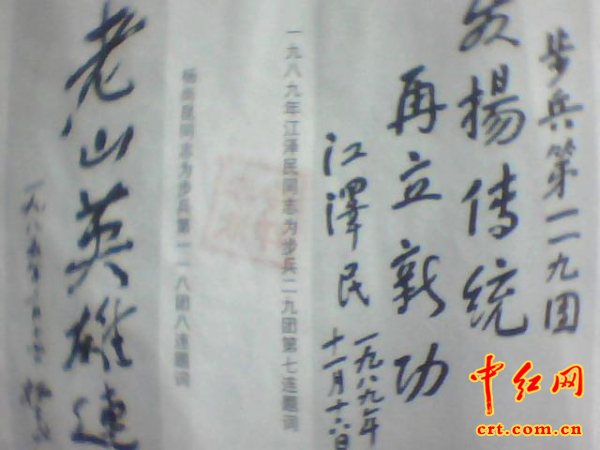 步兵第一一九团
发揚传统
再立新功
江澤民
一九八九年
十一月十六日
一九八九年江泽民同志为步兵一一九团第七连题词
杨尚昆同志为步兵第一一八团八连题词
老山英雄連
一九八五年
中红网
crt.com.cn